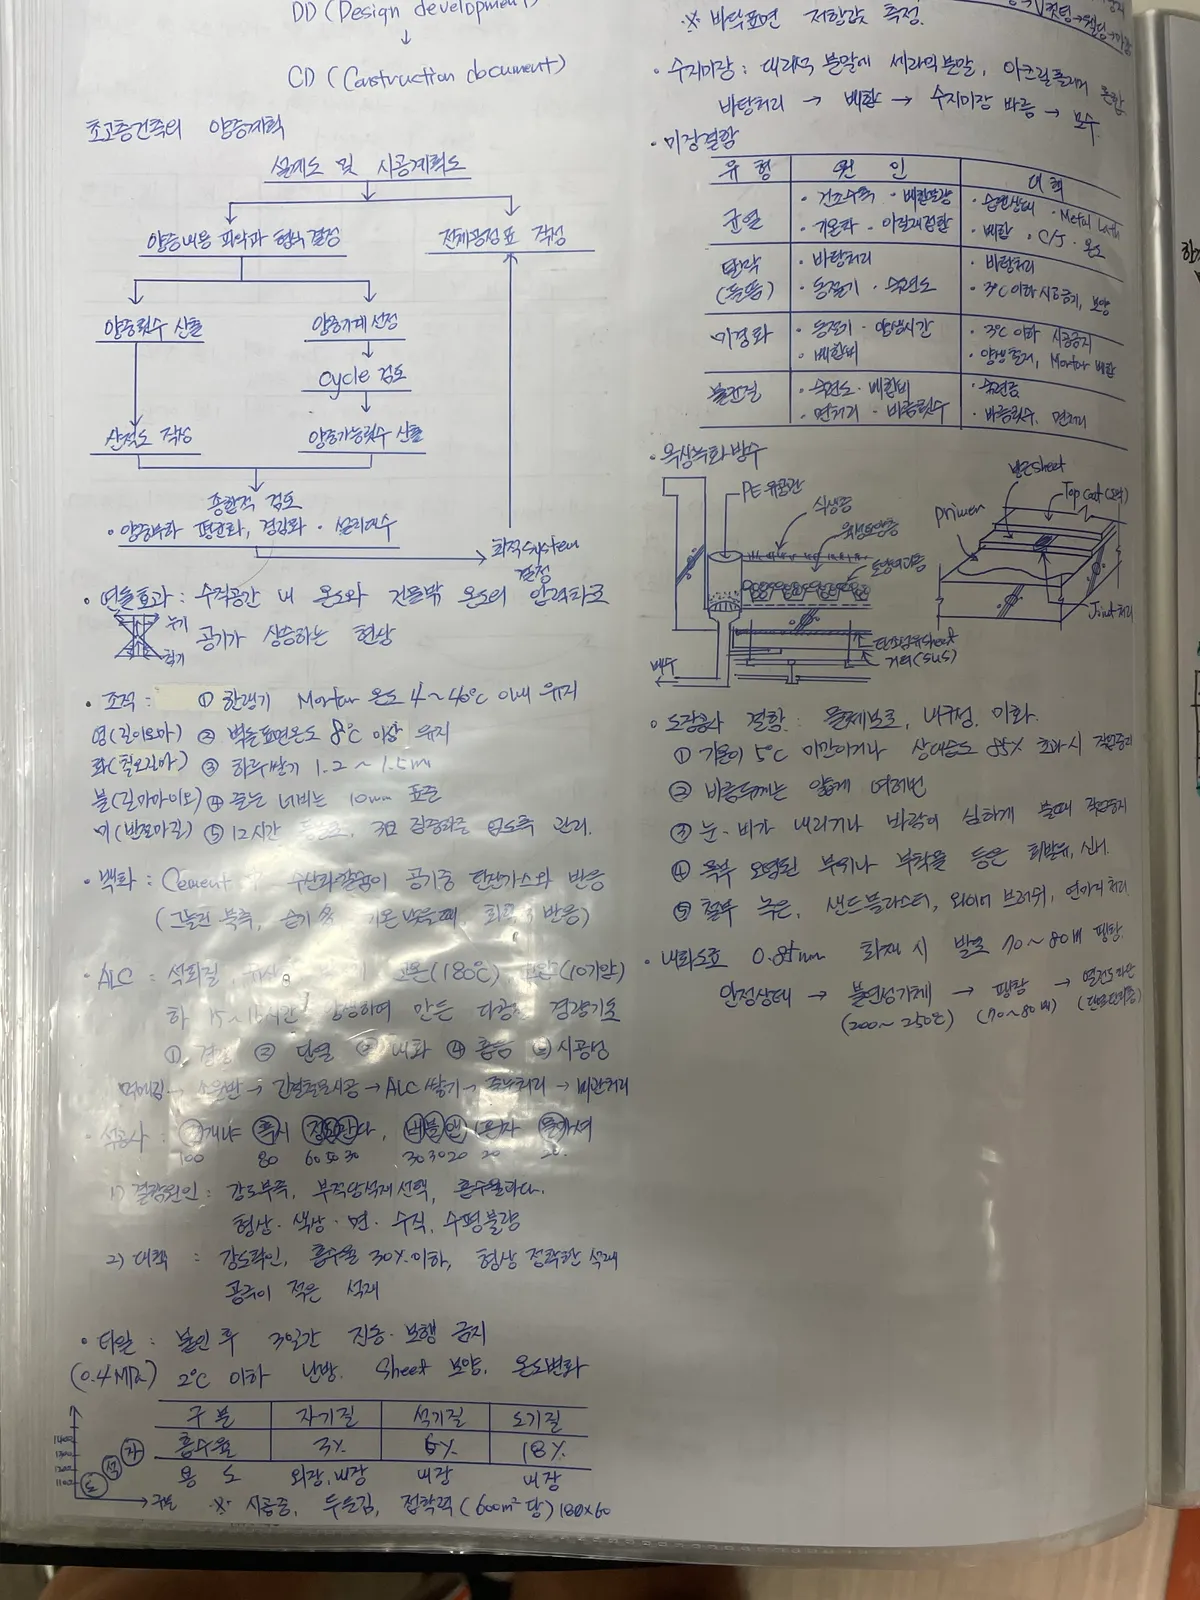 DD (Design development)
CD (Construction document)
초고층건축의 양중계획
설계도 및 시공계획도
양중내용 파악과 형식 결정
전체공정표 작성
양중횟수 산출
양중기계 선정
cycle 검토
산적도 작성
양중가능횟수 산출
종합적 검토
· 양중부하 평균화, 경감화 · 설치대수
최적system
결정
· 연돌효과 : 수직공간 내 온도와 건물밖 온도의 압력차로
공기가 상승하는 현상
· 조적 : ① 한랭기 Mortar 온도 4~40℃ 이내 유지
영(길이오마) ② 벽돌표면온도 8℃ 이상 유지
화(칠오리아) ③ 하루쌓기 1.2 ~ 1.5m
불(길가마이오) ④ 줄눈 너비는 10mm 표준
미(반절마길) ⑤ 12시간 3일 집중하중 없도록 관리.
· 백화 : Cement 수산화칼슘이 공기중 탄산가스와 반응
(그늘진 북측, 습기 기온 낮을때, 반응)
· ALC : 석회질, 고온(180℃), (10기압)
하 15~16시간 양생하여 만든 다공질 경량기포
① 경량 ② 단열 ③ 내화 ④ 흡음 ⑤ 시공성
먹메김 → → → ALC 쌓기 → → 미관처리
· 석공사 :
100 80 60 50 30 30 30 20 20 20
1) 결함원인 : 강도부족, 부적당석재 선택, 흡수율과다.
형상 · 색상 · 면 · 수직, 수평불량
2) 대책 : 강도확인, 흡수율 30% 이하, 형상 정확한 석재
공극이 적은 석재
· 타일 : 붙인 후 3일간 진동 · 보행 금지
(0.4MPa) 2℃ 이하 난방, Sheet 보양, 온도변화
구분 자기질 석기질 도기질
흡수율 3% 6% 18%
용도 외장, 내장 내장 내장
도 석 자
※ 시공중, 두들김, 접착력 (600m² 당) 180×60
※ 바닥표면 저항값 측정.
· 수지미장 : 대리석 분말에 세라믹분말, 혼합
바탕처리 → 배합 → 수지미장 바름 → 보수
· 미장결함
유형 원인 대책
균열 · 건조수축 · 배합불량 · 습윤상태 · Metal Lath
· 기온차 · 이질재접합 · 배합 · C/J · 온도
박락 · 바탕처리 · 바탕처리
(들뜸) · 동절기 · 숙련도 · 3℃이하 시공금지, 보양
미경화 · 동절기 · 양생시간 · 3℃ 이하 시공금지
· 배합비 · 양생철저, Mortar 배합
불관결 · 숙련도 · 배합비 · 숙련공
· 면처리 · 바름횟수 · 바름횟수, 면처리
· 옥상녹화 방수
PE 유공관
식생층
육성토양층
방근sheet
Top coat
primer
Joint처리
배수
거터(SUS)
· 도장공사 결함 : 물체보호, 내구성, 미화.
① 기온이 5℃ 미만이거나 상대습도 85% 초과시 작업중지
② 바름두께는 얇게 여러번
③ 눈 · 비가 내리거나 바람이 심하게 불때 작업중지
④ 목부 오염된 부위나 부착물 등은 휘발유, 신너.
⑤ 철부 녹은, 샌드블라스터, 와이어 브러쉬, 연마지 처리
· 내화도료 0.85mm 화재 시 발포 70~80배 팽창.
안정상태 → 불연성가스 → 팽창 → 열전도차단
(200~250℃) (70~80배)